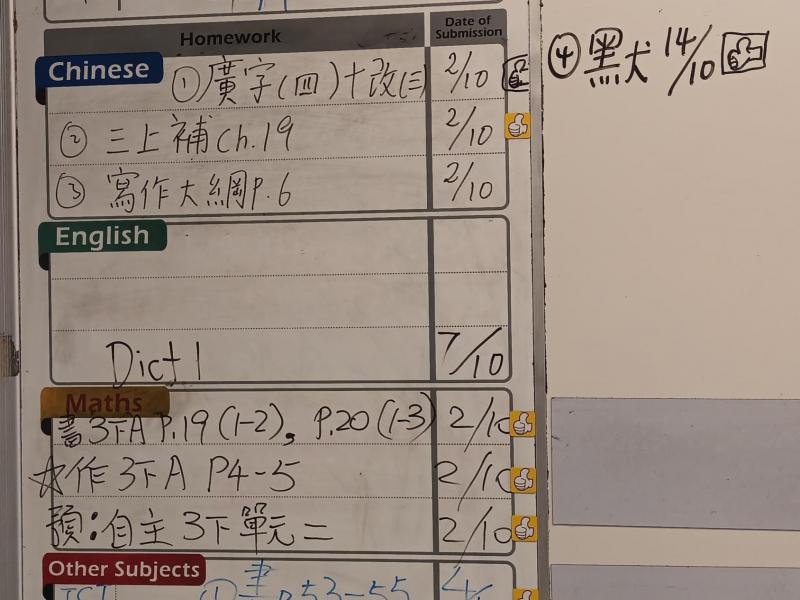 Homework
Date of Submission
Chinese
① 廣字(四)十改(三) 2/10
② 三上補Ch.19 2/10
③ 寫作大綱P.6 2/10
④ 黑犬 14/10
English
Dict 1 7/10
Maths
書3下A P.19 (1-2), P.20 (1-3) 2/10
☆作3下A P4-5 2/10
預:自主3下單元二 2/10
Other Subjects
① 書 P.53-55